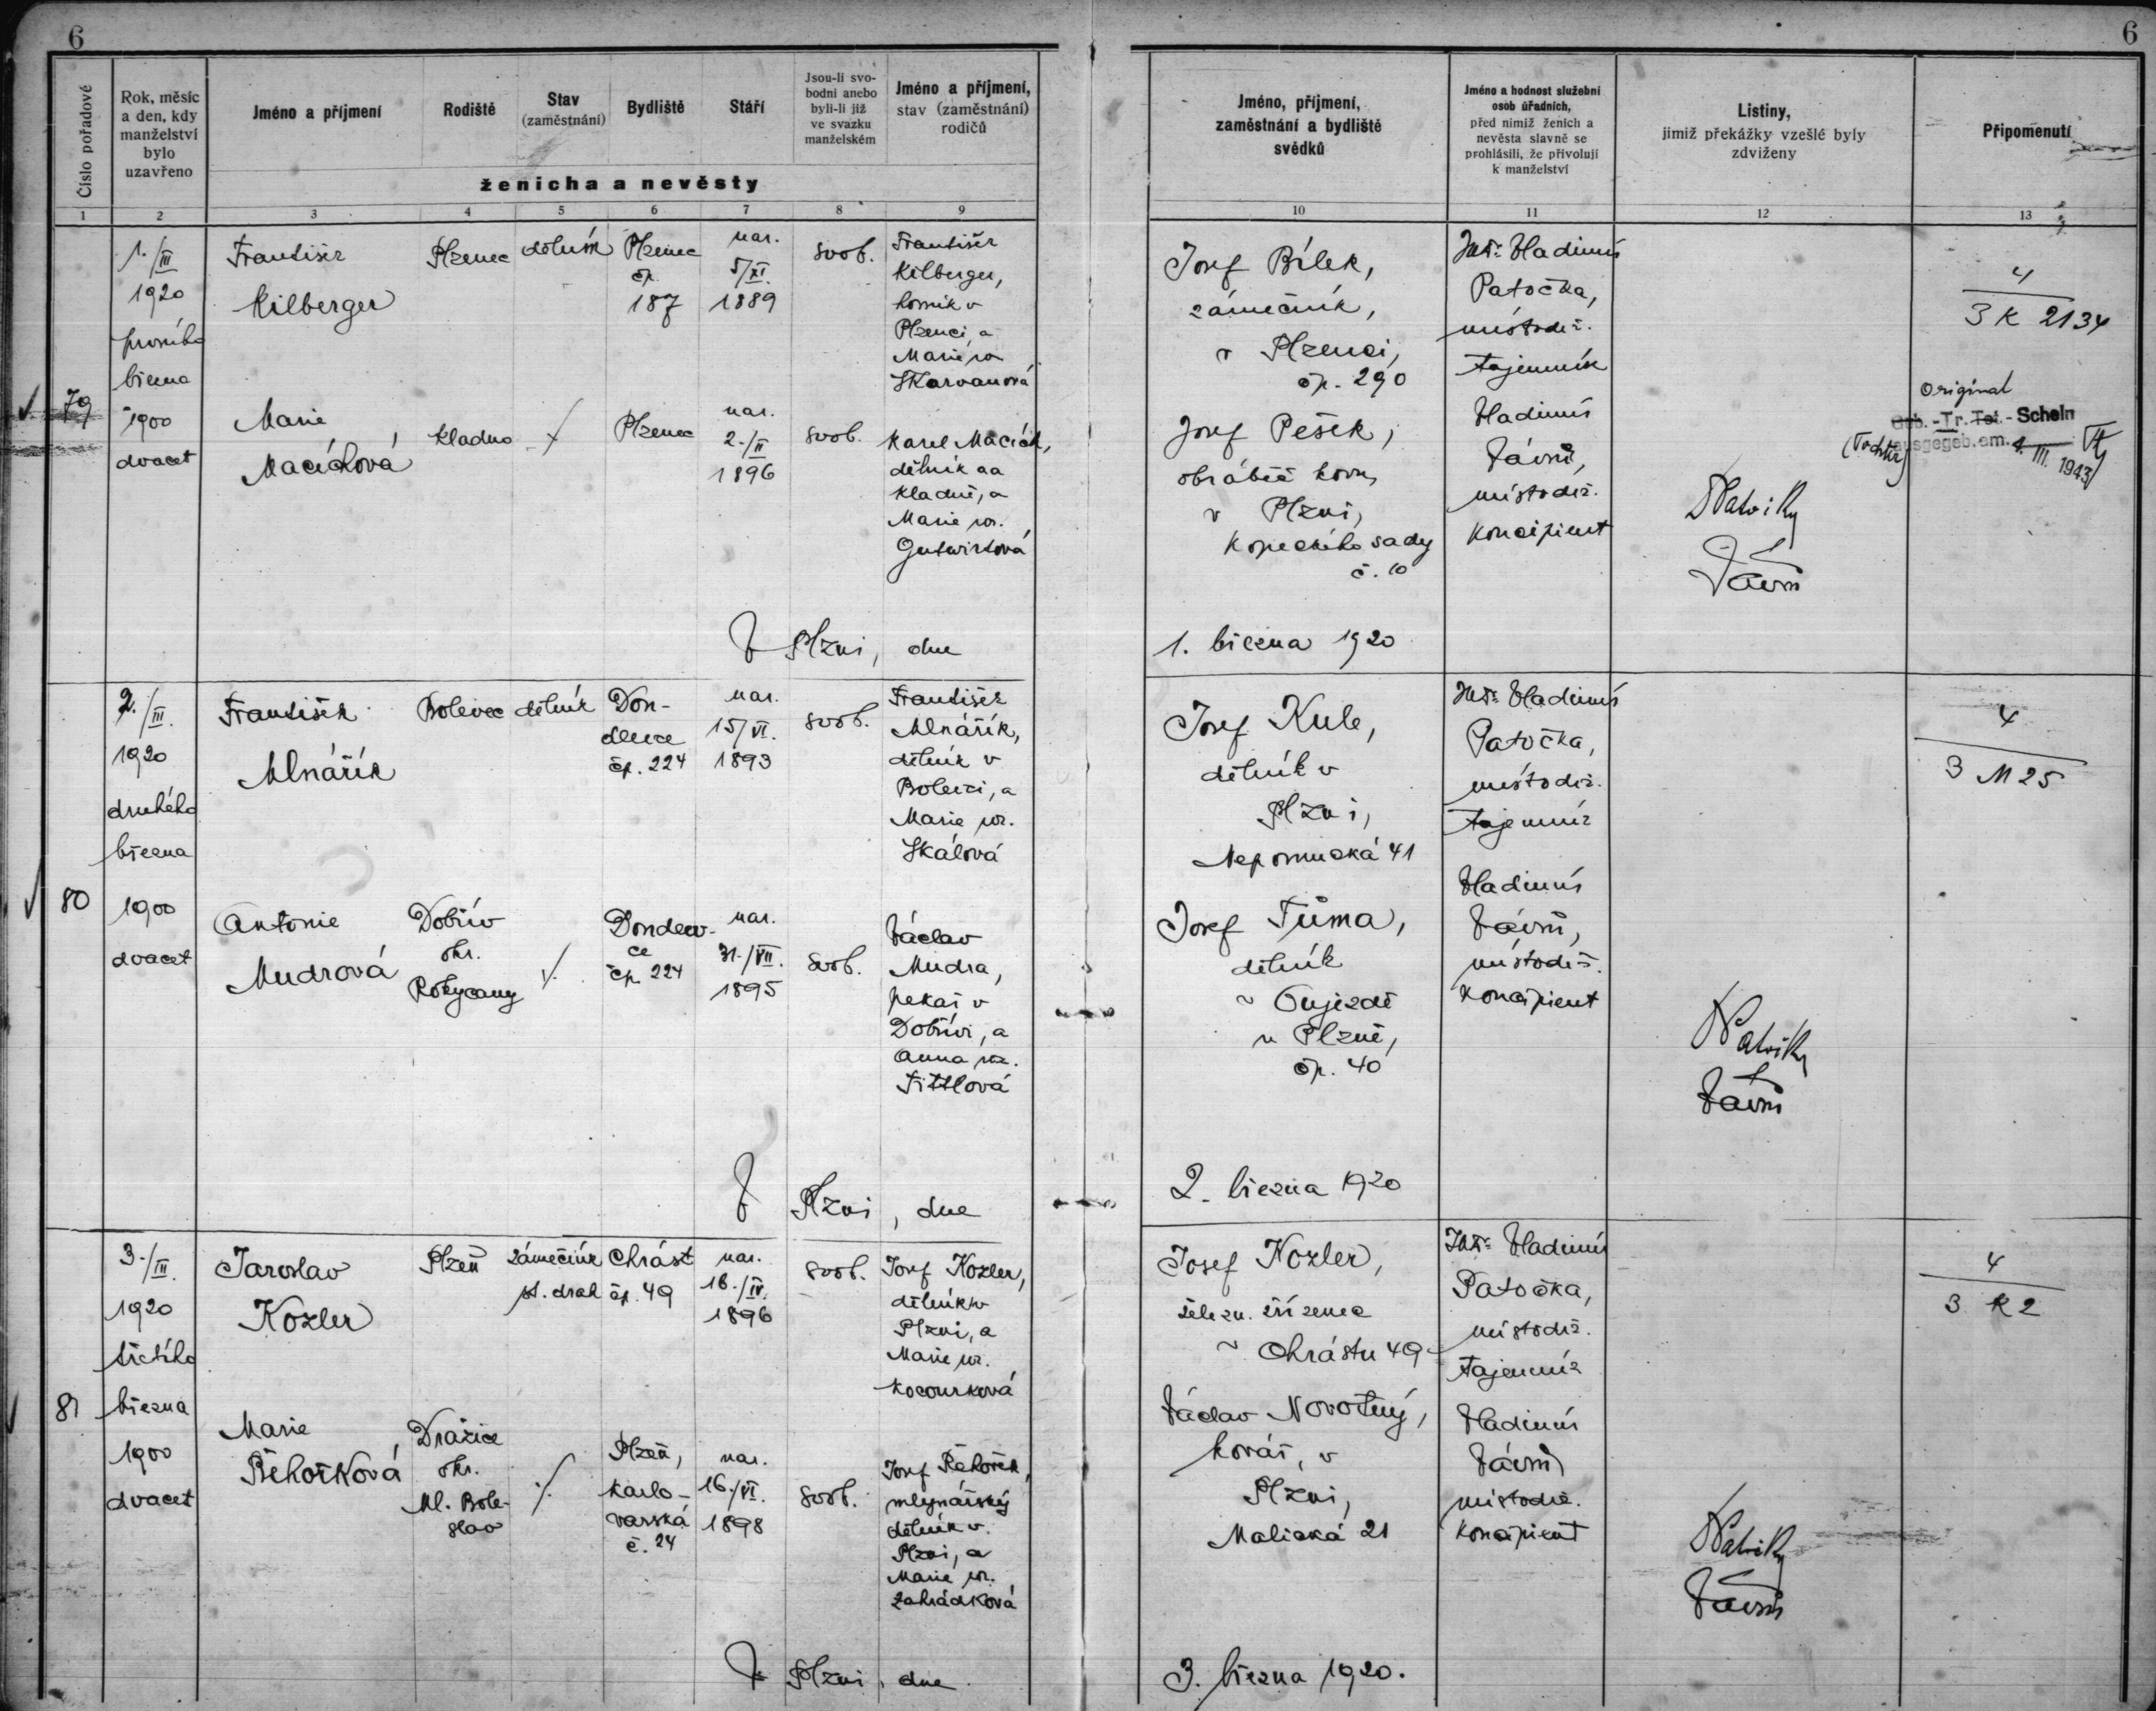 6
6
Číslo pořadové
Rok, měsíc
a den, kdy
manželství
bylo
uzavřeno
Jméno a příjmení
Rodiště
Stav
(zaměstnání)
Bydliště
Stáří
Jsou-li svo-
bodni anebo
byli-li již
ve svazku
manželském
Jméno a příjmení,
stav (zaměstnání)
rodičů
ženicha a nevěsty
Jméno, příjmení,
zaměstnání a bydliště
svědků
Jméno a hodnost služební
osob úřadních,
před nimiž ženich a
nevěsta slavně se
prohlásili, že přivolují
k manželství
Listiny,
jimiž překážky vzešlé byly
zdviženy
Připomenutí
1 2 3 4 5 6 7 8 9 10 11 12 13
79
1./III
1920
prvního
března
1900
dvacet
František
Kilberger
Plzenec
dělník
Plzenec
čp.
187
nar.
5/XI.
1889
svob.
František
Kilberger,
horník v
Plzenci, a
Marie roz.
Škarvanová
Marie
Maciáková
Kladno
Plzenec
nar.
2./II
1896
svob.
Karel Maciák,
dělník na
Kladně, a
Marie roz.
Gutwirtová
Josef Bílek,
zámečník,
v Plzenci,
čp. 290
Josef Pešek,
obráběč kovů,
v Plzni,
Kopeckého sady
č. 10
Vladimír
Patočka,
místodrž.
tajemník
Vladimír
Vávrů,
místodrž.
koncipient
4
3 K 2134
Original
Geb.-Tr.-Tot.-Schein
ausgegeb. am. 4. III. 1943
V Plzni, dne
1. března 1920
80
2./III.
1920
druhého
března
1900
dvacet
František
Mlnářík
Bolevec
dělník
Don-
dlevce
čp. 224
nar.
15/VI.
1893
svob.
František
Mlnářík,
dělník v
Bolevci, a
Marie roz.
Skálová
Antonie
Mudrová
Dobřív
okr.
Rokycany
Dondlev-
ce
čp. 224
nar.
31./VII.
1895
svob.
Václav
Mudra,
pekař v
Dobřívi, a
Anna roz.
Tittlová
Josef Kule,
dělník v
Plzni,
Nepomucká 41
Josef Tůma,
dělník
v Oujezdě
u Plzně,
čp. 40
Vladimír
Patočka,
místodrž.
tajemník
Vladimír
Vávrů,
místodrž.
koncipient
4
3 M 25
V Plzni, dne
2. března 1920
81
3./III.
1920
třetího
března
1900
dvacet
Jaroslav
Kozler
Plzeň
zámečník
st. drah
Chrást
čp. 49
nar.
18./IV.
1896
svob.
Josef Kozler,
dělník v
Plzni, a
Marie roz.
Kocourková
Marie
Řehořková
Dražice
okr.
Ml. Bole-
slav
Plzeň,
Karlo-
varská
č. 24
nar.
16./VI.
1898
svob.
Josef Řehořek,
mlynářský
dělník v
Plzni, a
Marie roz.
Zahrádková
Josef Kozler,
železn. zřízenec
v Chrástu 49
Václav Novotný,
kovář, v
Plzni,
Malická 21
Vladimír
Patočka,
místodrž.
tajemník
Vladimír
Vávrů,
místodrž.
koncipient
4
3 K 2
V Plzni, dne
3. března 1920.